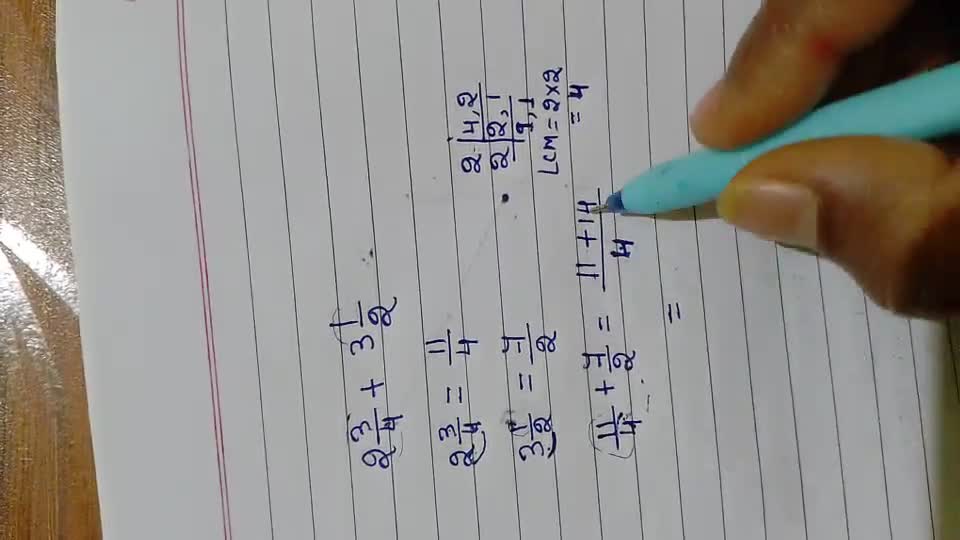 2 3/4 + 3 1/2
2 3/4 = 11/4
3 1/2 = 7/2
11/4 + 7/2 = (11 + 14)/4
=
2 | 4, 2
2 | 2, 1
1, 1
LCM = 2 × 2
= 4